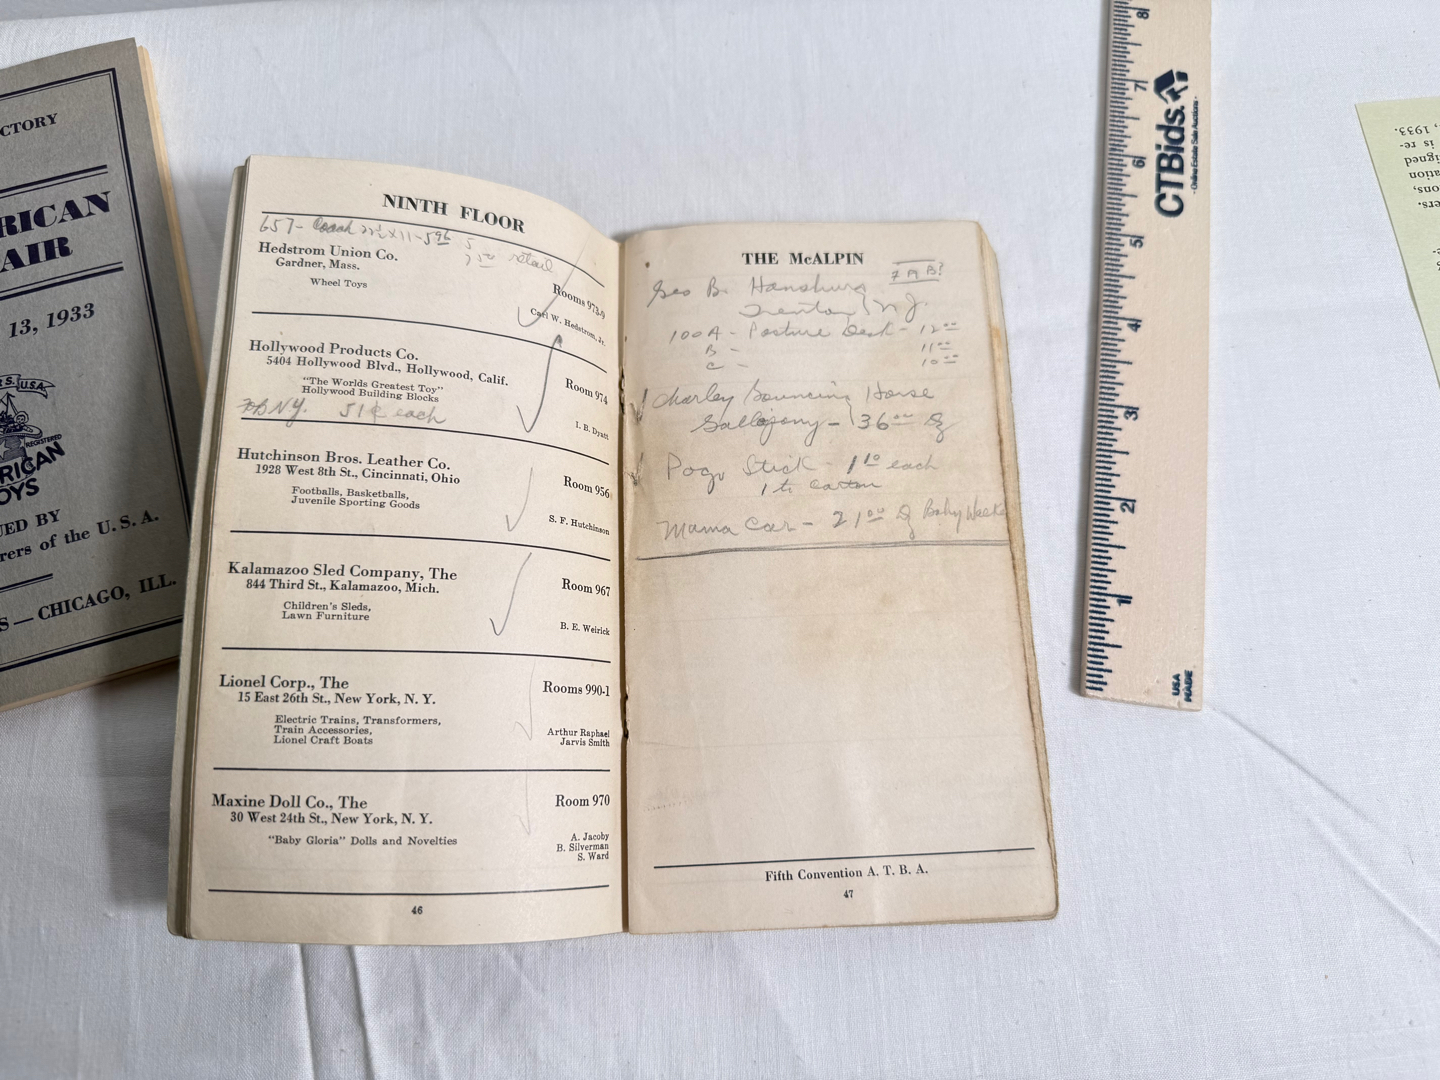 CTORY
RICAN
AIR
13, 1933
RS. U.S.A.
REGISTERED
RICAN
OYS
UED BY
rers of the U. S. A.
S — CHICAGO, ILL.
NINTH FLOOR
657- Coach 22½ x 11 - 5
retail
Hedstrom Union Co.
Gardner, Mass.
Wheel Toys
Rooms 973-9
Carl W. Hedstrom, Jr.
Hollywood Products Co.
5404 Hollywood Blvd., Hollywood, Calif.
"The Worlds Greatest Toy"
Hollywood Building Blocks
Room 974
I. B. Dyatt
N.Y. 51¢ each
Hutchinson Bros. Leather Co.
1928 West 8th St., Cincinnati, Ohio
Footballs, Basketballs,
Juvenile Sporting Goods
Room 956
S. F. Hutchinson
Kalamazoo Sled Company, The
844 Third St., Kalamazoo, Mich.
Children's Sleds,
Lawn Furniture
Room 967
B. E. Weirick
Lionel Corp., The
15 East 26th St., New York, N. Y.
Electric Trains, Transformers,
Train Accessories,
Lionel Craft Boats
Rooms 990-1
Arthur Raphael
Jarvis Smith
Maxine Doll Co., The
30 West 24th St., New York, N. Y.
"Baby Gloria" Dolls and Novelties
Room 970
A. Jacoby
B. Silverman
S. Ward
46
THE McALPIN
Geo B.
Trenton N.J.
100A - Posture Desk - 12 00
B - 11 00
C - 10 00
Charley Bouncing Horse
- 36 00
Pogo Stick - 1 10 each
carton
Mama Car - 21 00 Baby
Fifth Convention A. T. B. A.
47
8
7
6
5
4
3
2
1
CTBids.
- Online Estate Sale Auctions -
USA
MADE
, 1933.
is re-
igned
ation
ons,
ers.